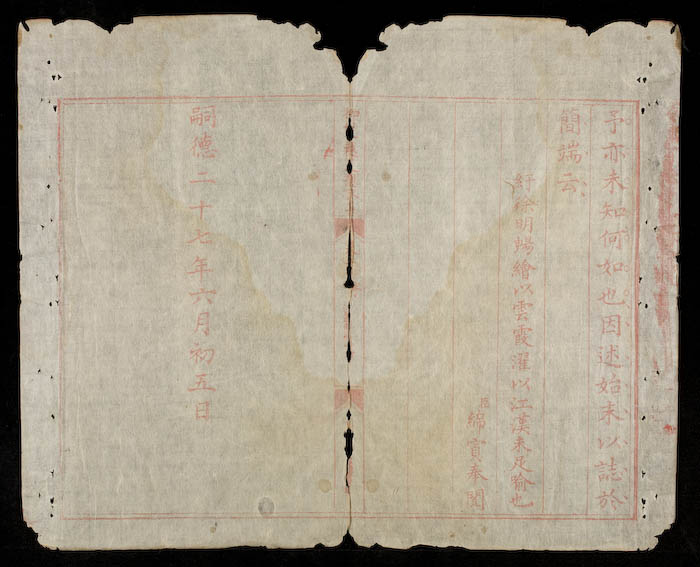 予亦未知何如也因述始末以誌於
簡端云
紆徐明暢繪以雲霞濯以江漢未足喻也
臣綿寊奉閱
嗣德二十七年六月初五日